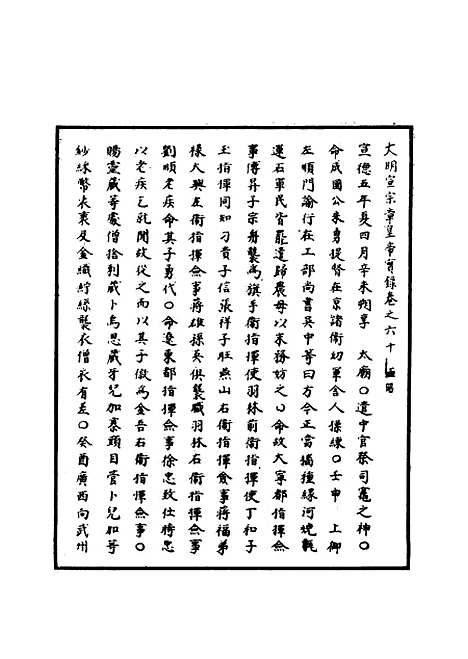 大明宣宗章皇帝實錄卷之六十五
宣德五年夏四月辛未朔享　太廟○遣中官祭司竈之神○
命成國公朱勇提督在京諸衛幼軍舍人操練○壬申　上御
左順門諭行在工部尚書吳中等曰方今正當播種緣河燒甎
運石軍民皆罷遣歸農毋以末務妨之○命故大寧都指揮僉
事傅昇子宗舟襲為旗手衛指揮使羽林前衛指揮使丁和子
玉指揮同知刁貴子信張祥子旺燕山右衛指揮僉事蔣福弟
祿大興左衛指揮僉事蔣雄孫英俱襲職羽林右衛指揮僉事
劉順老疾命其子勇代○命遼東都指揮僉事徐忠致仕時忠
以老疾乞訛聞故從之而以其子儆為金吾右衛指揮僉事○
賜靈藏等處僧捨剌藏卜烏思藏牙兒加寨頭目管卜兒加等
鈔綵幣表裏及金織紵絲襲衣僧衣有差○癸酉廣西向武州